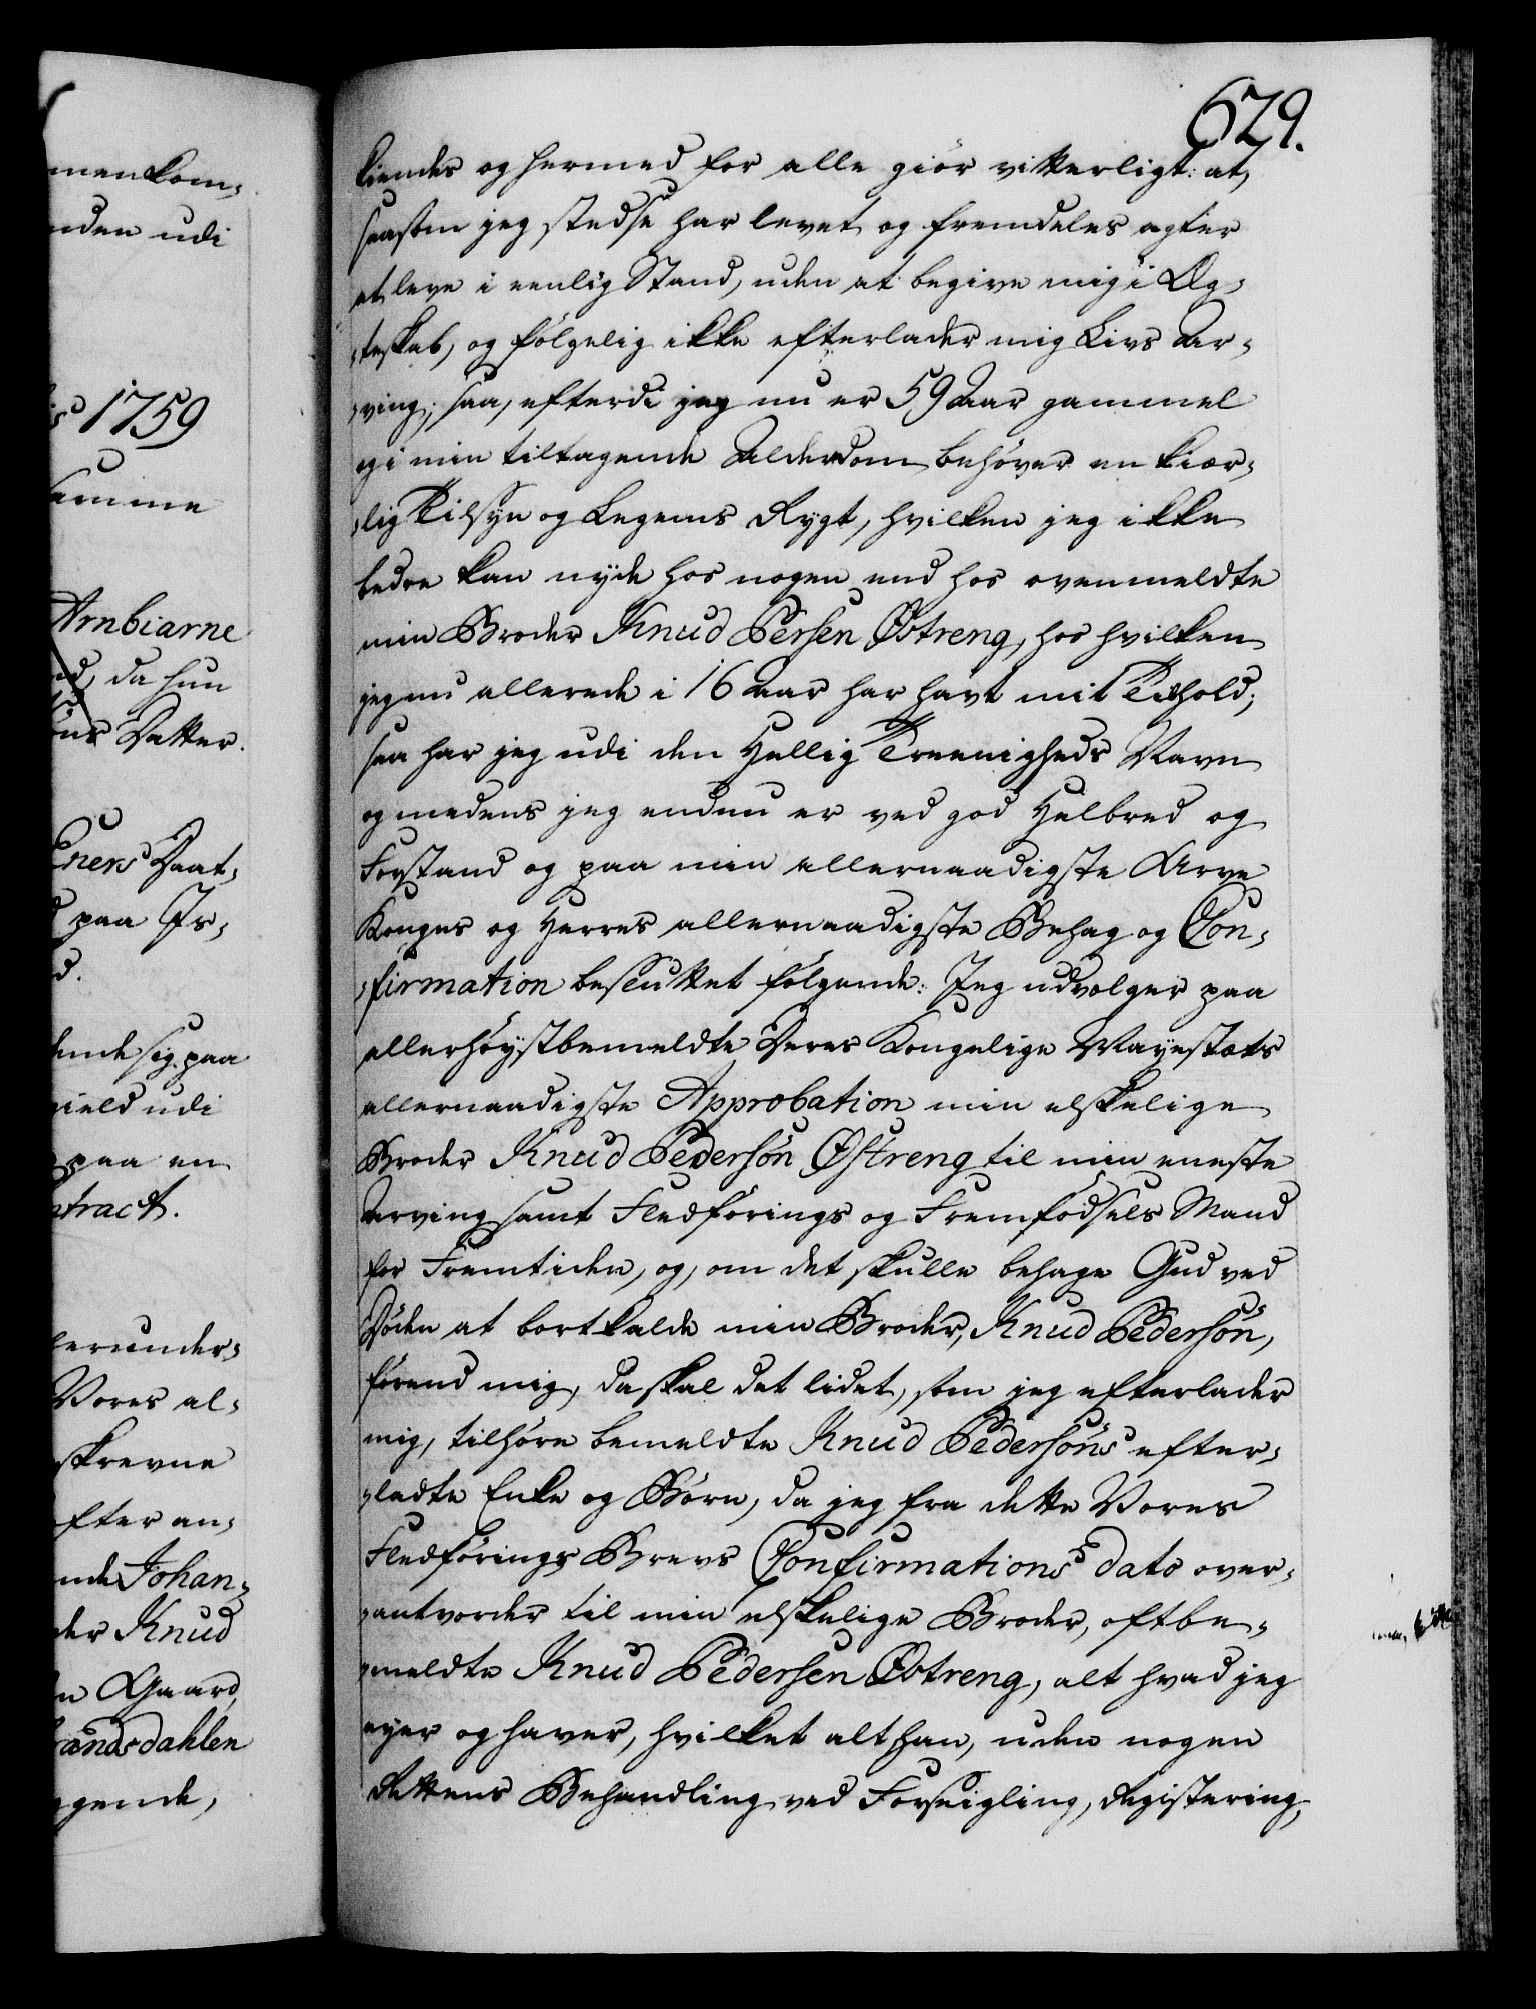 629.
menkom-
nden udi
1759
samme
Arnbiarne
nd, da hun
ons Datter.
Eners Daat-
d paa Is-
d.
ende sig paa
gield udi
paa en
ntract.
herunder-
Vores al-
skrevne
efter an-
nde Johan-
der Knud
n Gaard,
brandsdahlen
ggende,
kiendes og hermed for alle giör vitterligt: at,
saasom jeg stedse har levet og fremdeles agter
at leve i eenlig Stand, uden at begive mig i Æg-
teskab, og fölgelig ikke efterlader mig Livs Ar-
ving; saa, efterdi jeg nu er 59 Aar gammel
og i min tiltagende Alderdom behöver en kiær-
lig Tilsyn og Legems Rygt, hvilken jeg ikke
bedre kan nyde hos nogen end hos ovenmeldte
min Broder Knud Persen Østreng, hos hvilken
jeg nu allerede i 16 Aar har havt mit Tilhold;
saa har jeg udi den Hellig Treenigheds Navn
og medens jeg endnu er ved god Helbred og
Forstand og paa min allernaadigste Arve
Konges og Herres allernaadigste Behag og Con-
firmation besluttet fölgende: Jeg udvælger paa
allerhöystbemeldte Deres Kongelige Mayestæts
allernaadigste Approbation min elskelige
Broder Knud Pedersön Østreng til min eneste
Arving samt Fledförings og Fremfödsels Mand
for Fremtiden, og, om det skulle behage Gud ved
Döden at bortkalde min Broder, Knud Pedersön,
förend mig, da skal det lidet, som jeg efterlader
mig, tilhöre bemeldte Knud Pedersöns efter-
ladte Enke og Börn, da jeg fra dette Vores
Fledförings Brevs Confirmations dato over-
antvorder til min elskelige Broder, oftbe-
meldte Knud Pedersen Østreng, alt hvad jeg
eyer og haver, hvilket alt han, uden nogen
Rettens Behandling ved Forseigling, Registering,